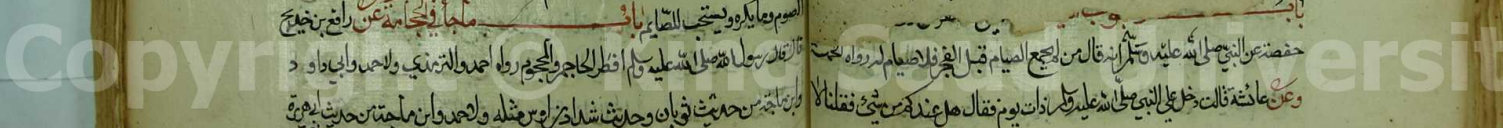 باب وجوب
حفصة عن النبي صلى الله عليه وسلم انه قال من لم يجمع الصيام قبل الفجر فلا صيام له رواه الخمسة
وعن عائشة قالت دخل علي النبي صلى الله عليه وسلم ذات يوم فقال هل عندكم من شيء فقلنا لا
الصوم وما يكره ويستحب للصائم باب ما جاء في الحجامة عن رافع بن خديج
قال قال رسول الله صلى الله عليه وسلم افطر الحاجم والمحجوم رواه احمد والترمذي ولاحمد وابي داود
وابن ماجة من حديث ثوبان وحديث شداد بن اوس مثله ولاحمد وابن ماجة من حديث ابي هريرة
Copyright © King Saud Universit